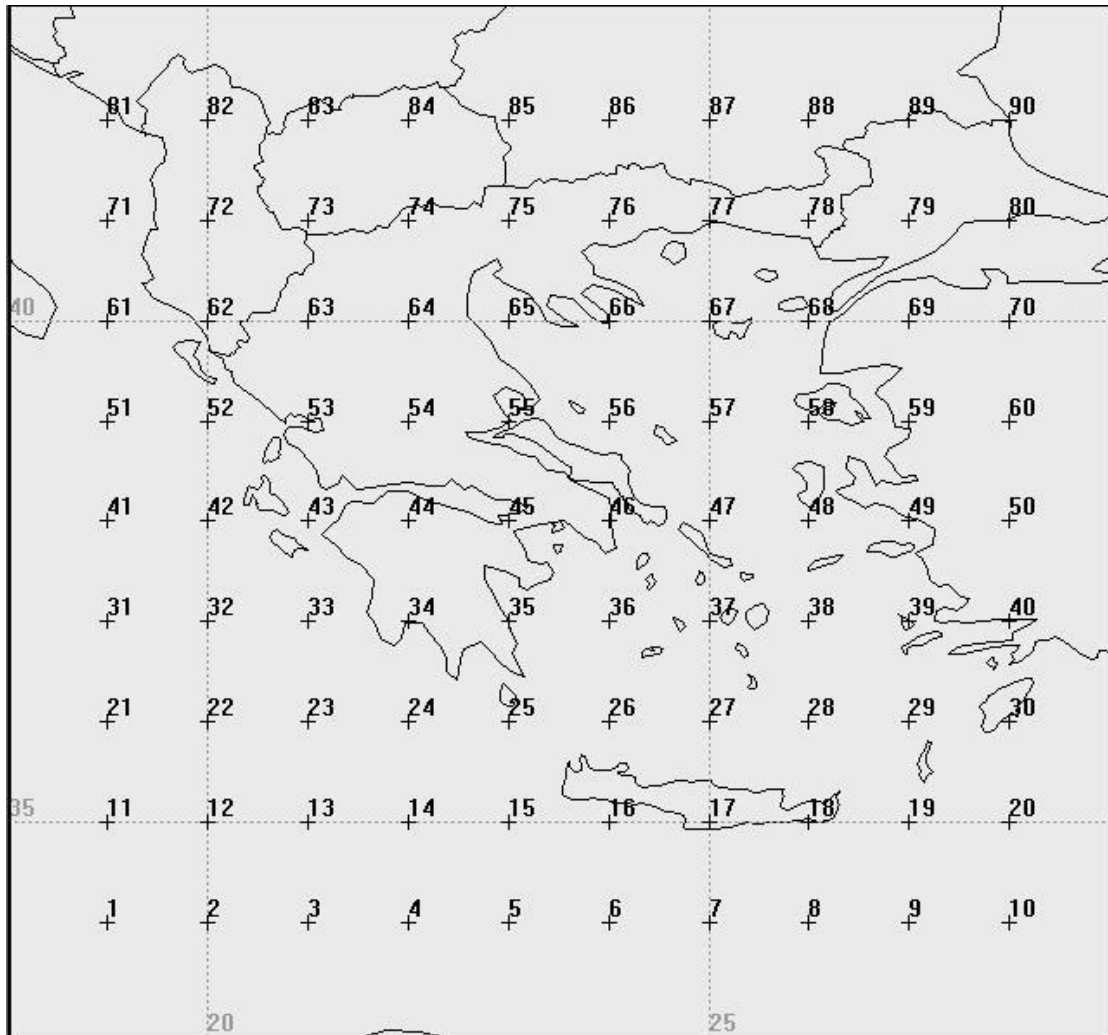 81 82 83 84 85 86 87 88 89 90
71 72 73 74 75 76 77 78 79 80
40 61 62 63 64 65 66 67 68 69 70
51 52 53 54 55 56 57 58 59 60
41 42 43 44 45 46 47 48 49 50
31 32 33 34 35 36 37 38 39 40
21 22 23 24 25 26 27 28 29 30
35 11 12 13 14 15 16 17 18 19 20
1 2 3 4 5 6 7 8 9 10
20 25